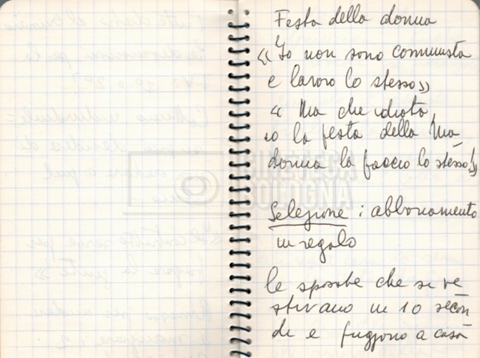 Festa della donna
«Io non sono comunista
e lavoro lo stesso»
« Ma che idiota,
io la festa della Ma
donna la faccio lo stesso!»
Selezione : abbonamento
in regalo
le sposate che si ve
stivano in 10 secon
di e fuggono a casa
CINETECA
BOLOGNA